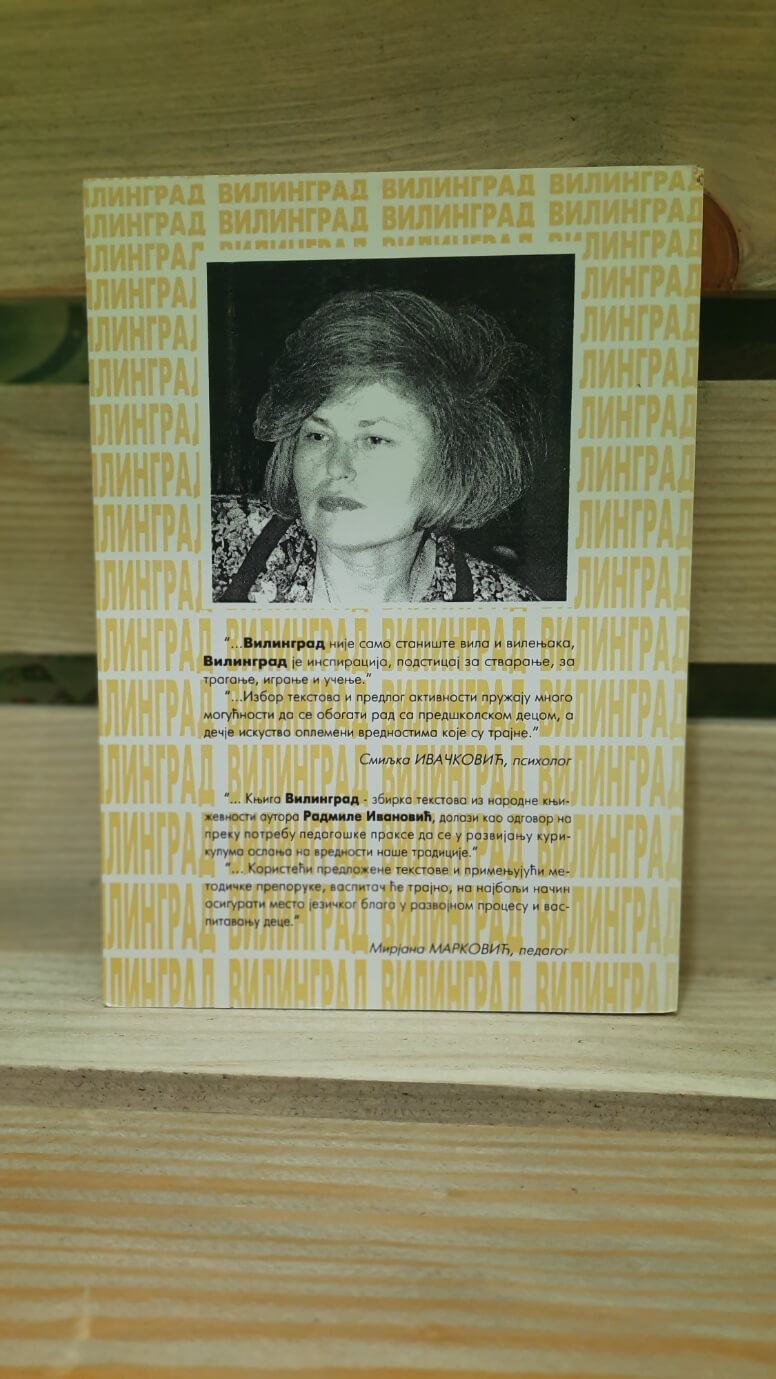 ЛИНГРАД ВИЛИНГРАД ВИЛИНГРАД ВИЛИНГРАД
ЛИНГРАД ВИЛИНГРАД ВИЛИНГРАД ВИЛИНГРАД
"...Вилинград није само станиште вила и вилењака,
Вилинград је инспирација, подстицај за стварање, за
трагање, играње и учење."
"...Избор текстова и предлог активности пружају много
могућности да се обогати рад са предшколском децом, а
дечје искуство оплемени вредностима које су трајне."
Смиљка ИВАЧКОВИЋ, психолог
"... Књига Вилинград - збирка текстова из народне књи-
жевности аутора Радмиле Ивановић, долази као одговор на
преку потребу педагошке праксе да се у развијању кури-
кулума ослања на вредности наше традиције."
"... Користећи предложене текстове и примењујући ме-
тодичке препоруке, васпитач ће трајно, на најбољи начин
осигурати место језичког блага у развојном процесу и вас-
питавању деце."
Мирјана МАРКОВИЋ, педагог